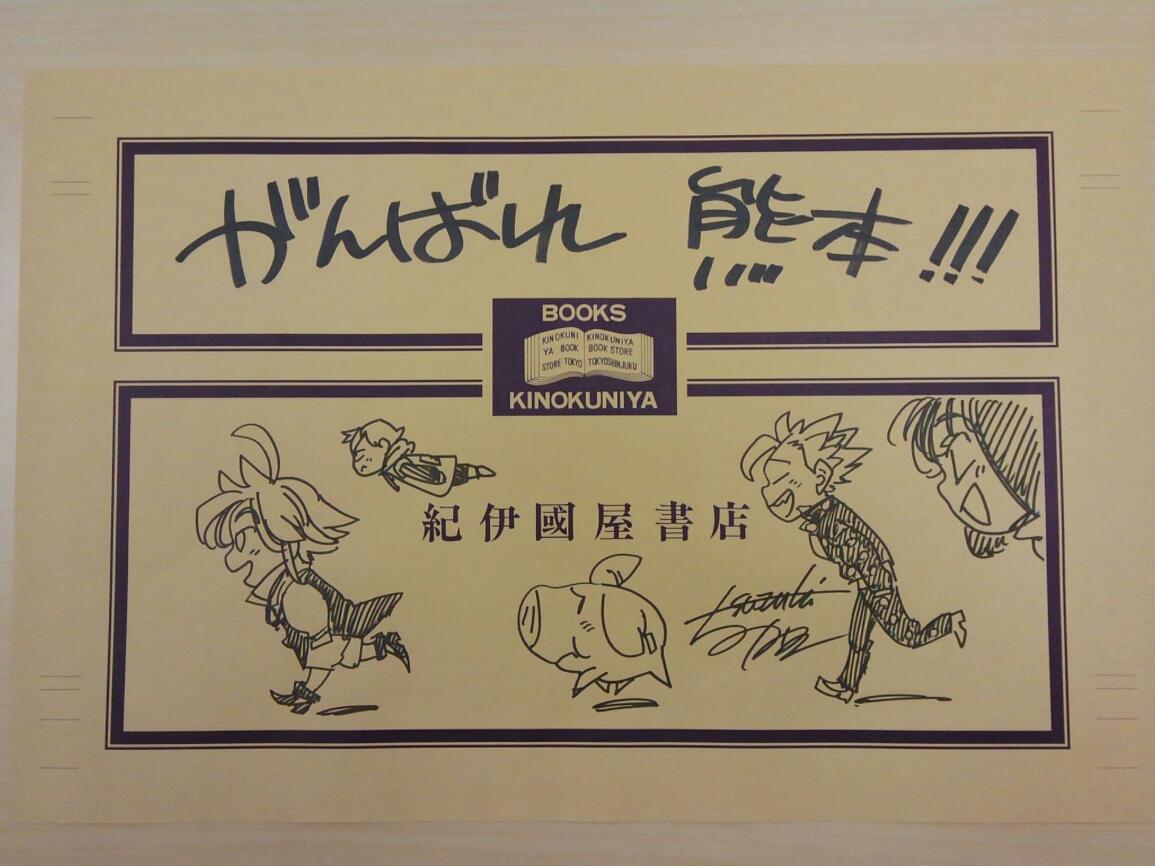 がんばれ 熊本!!!
BOOKS
KINOKUNI KINOKUNIYA
YA BOOK BOOK STORE
STORE TOKYO TOKYOSHINJUKU
KINOKUNIYA
紀伊國屋書店
suzuki